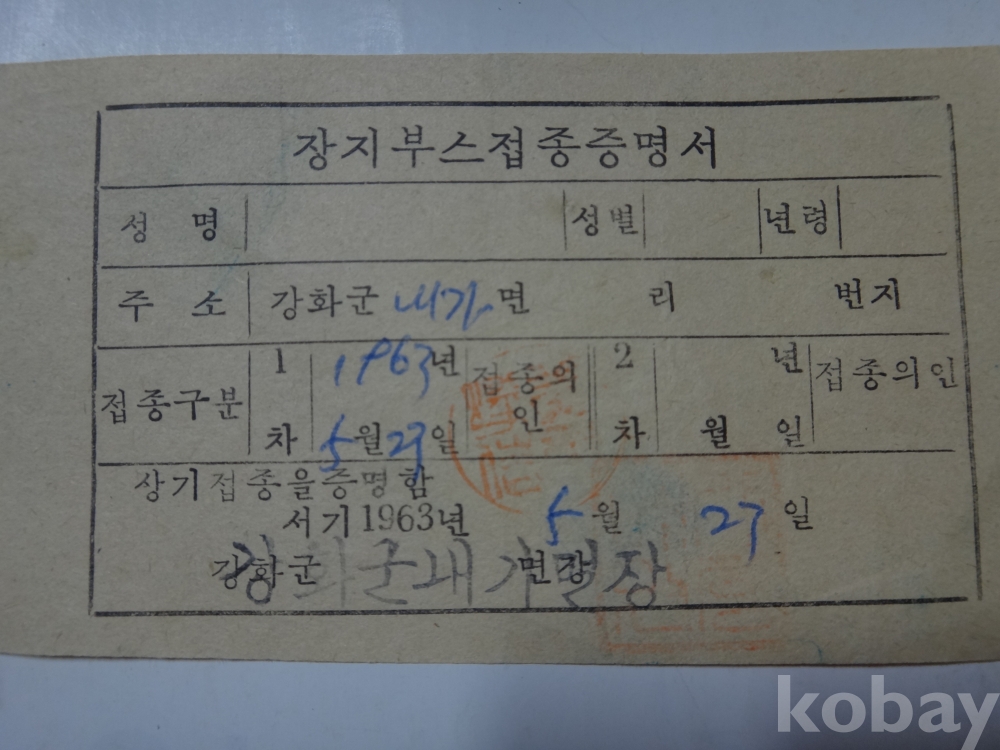 장지부스접종증명서
성 명 성별 년령
주 소 강화군 내가면 리 번지
접종구분 1차 1963년 5월 27일 접종의인 2차 년 월 일 접종의인
상기접종을증명함
서기 1963년 5월 27일
강화군 면장
강화군내가면장
kobay